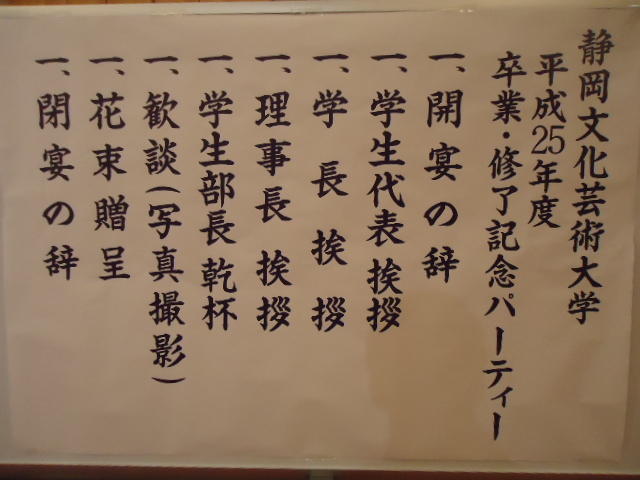 静岡文化芸術大学
平成25年度
卒業・修了記念パーティー
一、開宴の辞
一、学生代表挨拶
一、学長挨拶
一、理事長挨拶
一、学生部長乾杯
一、歓談(写真撮影)
一、花束贈呈
一、閉宴の辞